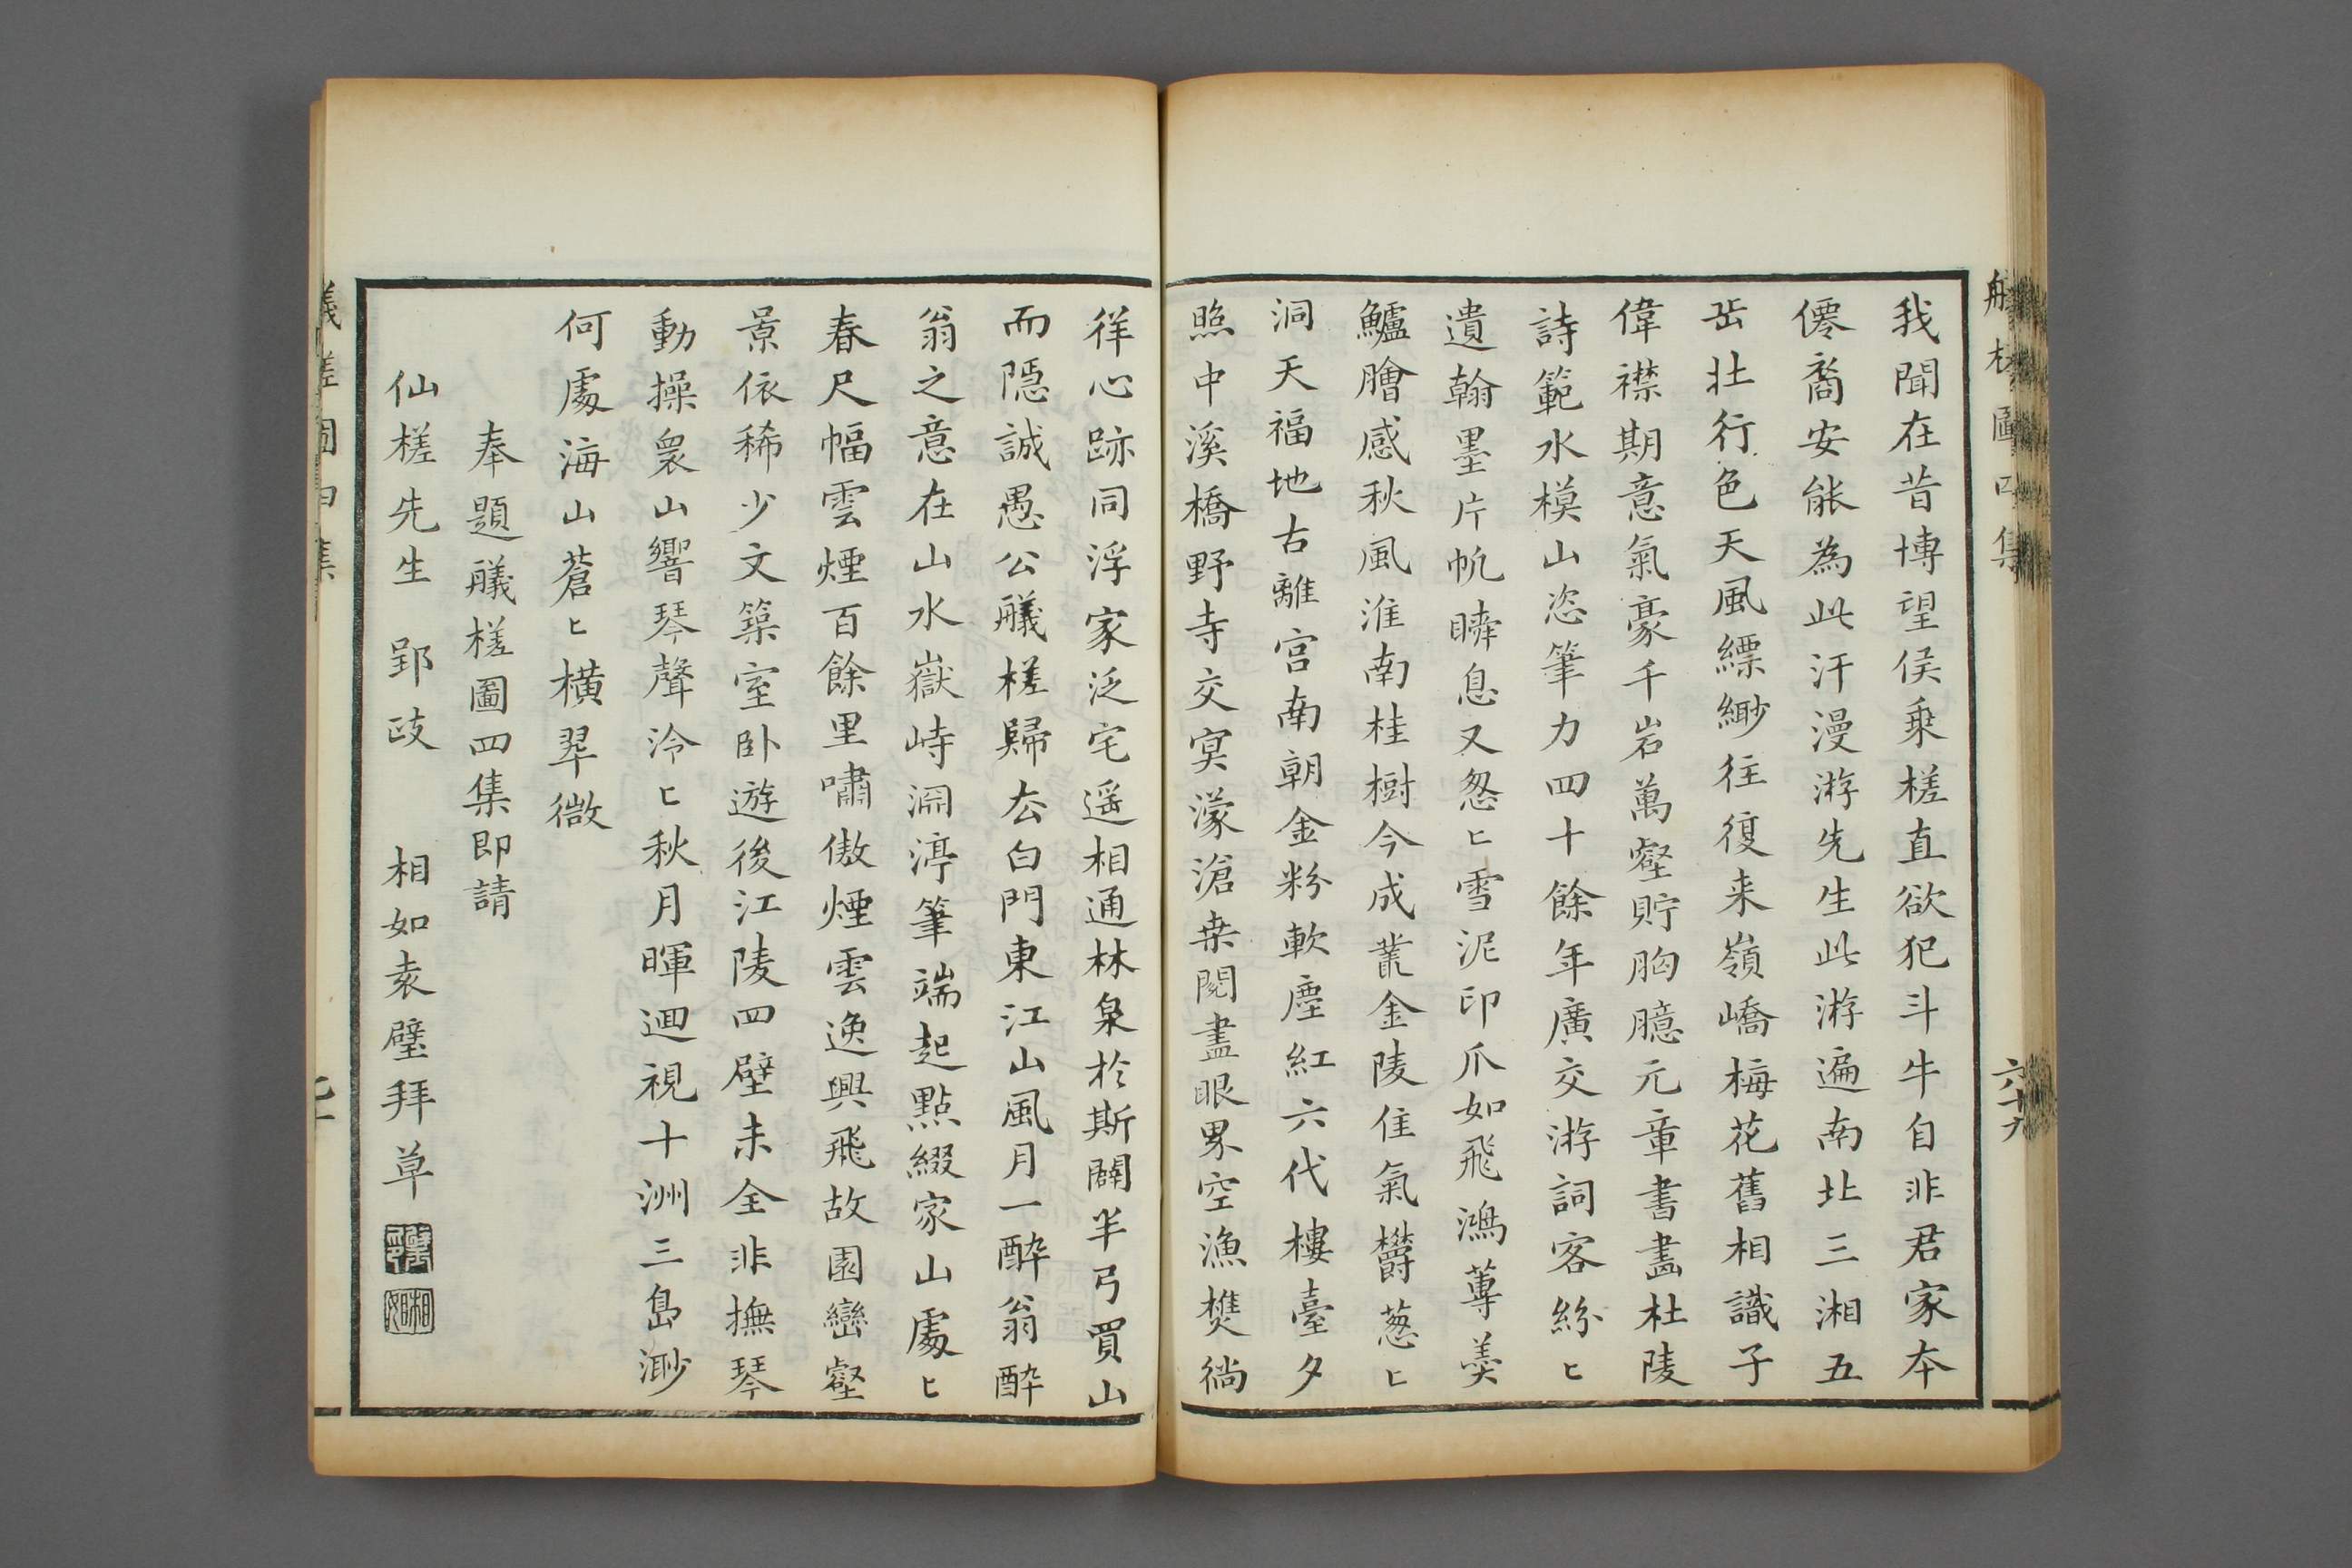 我聞在昔博望侯乘槎直欲犯斗牛自非君家本
僊裔安能為此汗漫游先生此游遍南北三湘五
岳壯行色天風縹緲往復来嶺嶠梅花舊相識子
偉襟期意氣豪千岩萬壑貯胸臆元章書畫杜陵
詩範水模山恣筆力四十餘年廣交游詞客紛匕
遺翰墨片帆瞬息又怱匕雪泥印爪如飛鴻蓴羮
鱸膾感秋風淮南桂樹今成叢金陵佳氣欝葱匕
洞天福地古離宮南朝金粉軟塵紅六代樓臺夕
照中溪橋野寺交㝠濛滄桒閱盡眼界空漁樵徜
徉心跡同浮家泛宅遥相通林泉於斯闢半弓買山
而隱誠愚公艤槎歸去白門東江山風月一醉翁醉
翁之意在山水嶽峙淵渟筆端起點綴家山處匕
春尺幅雲煙百餘里嘯傲煙雲逸興飛故園巒壑
景依稀少文築室卧遊後江陵四壁未全非撫琴
動操衆山響琴聲泠匕秋月暉迴視十洲三島渺
何處海山蒼匕橫翠微
奉題艤槎圖四集即請
仙槎先生 郢政 相如袁璧拜草
艤槎圖四集
六十九